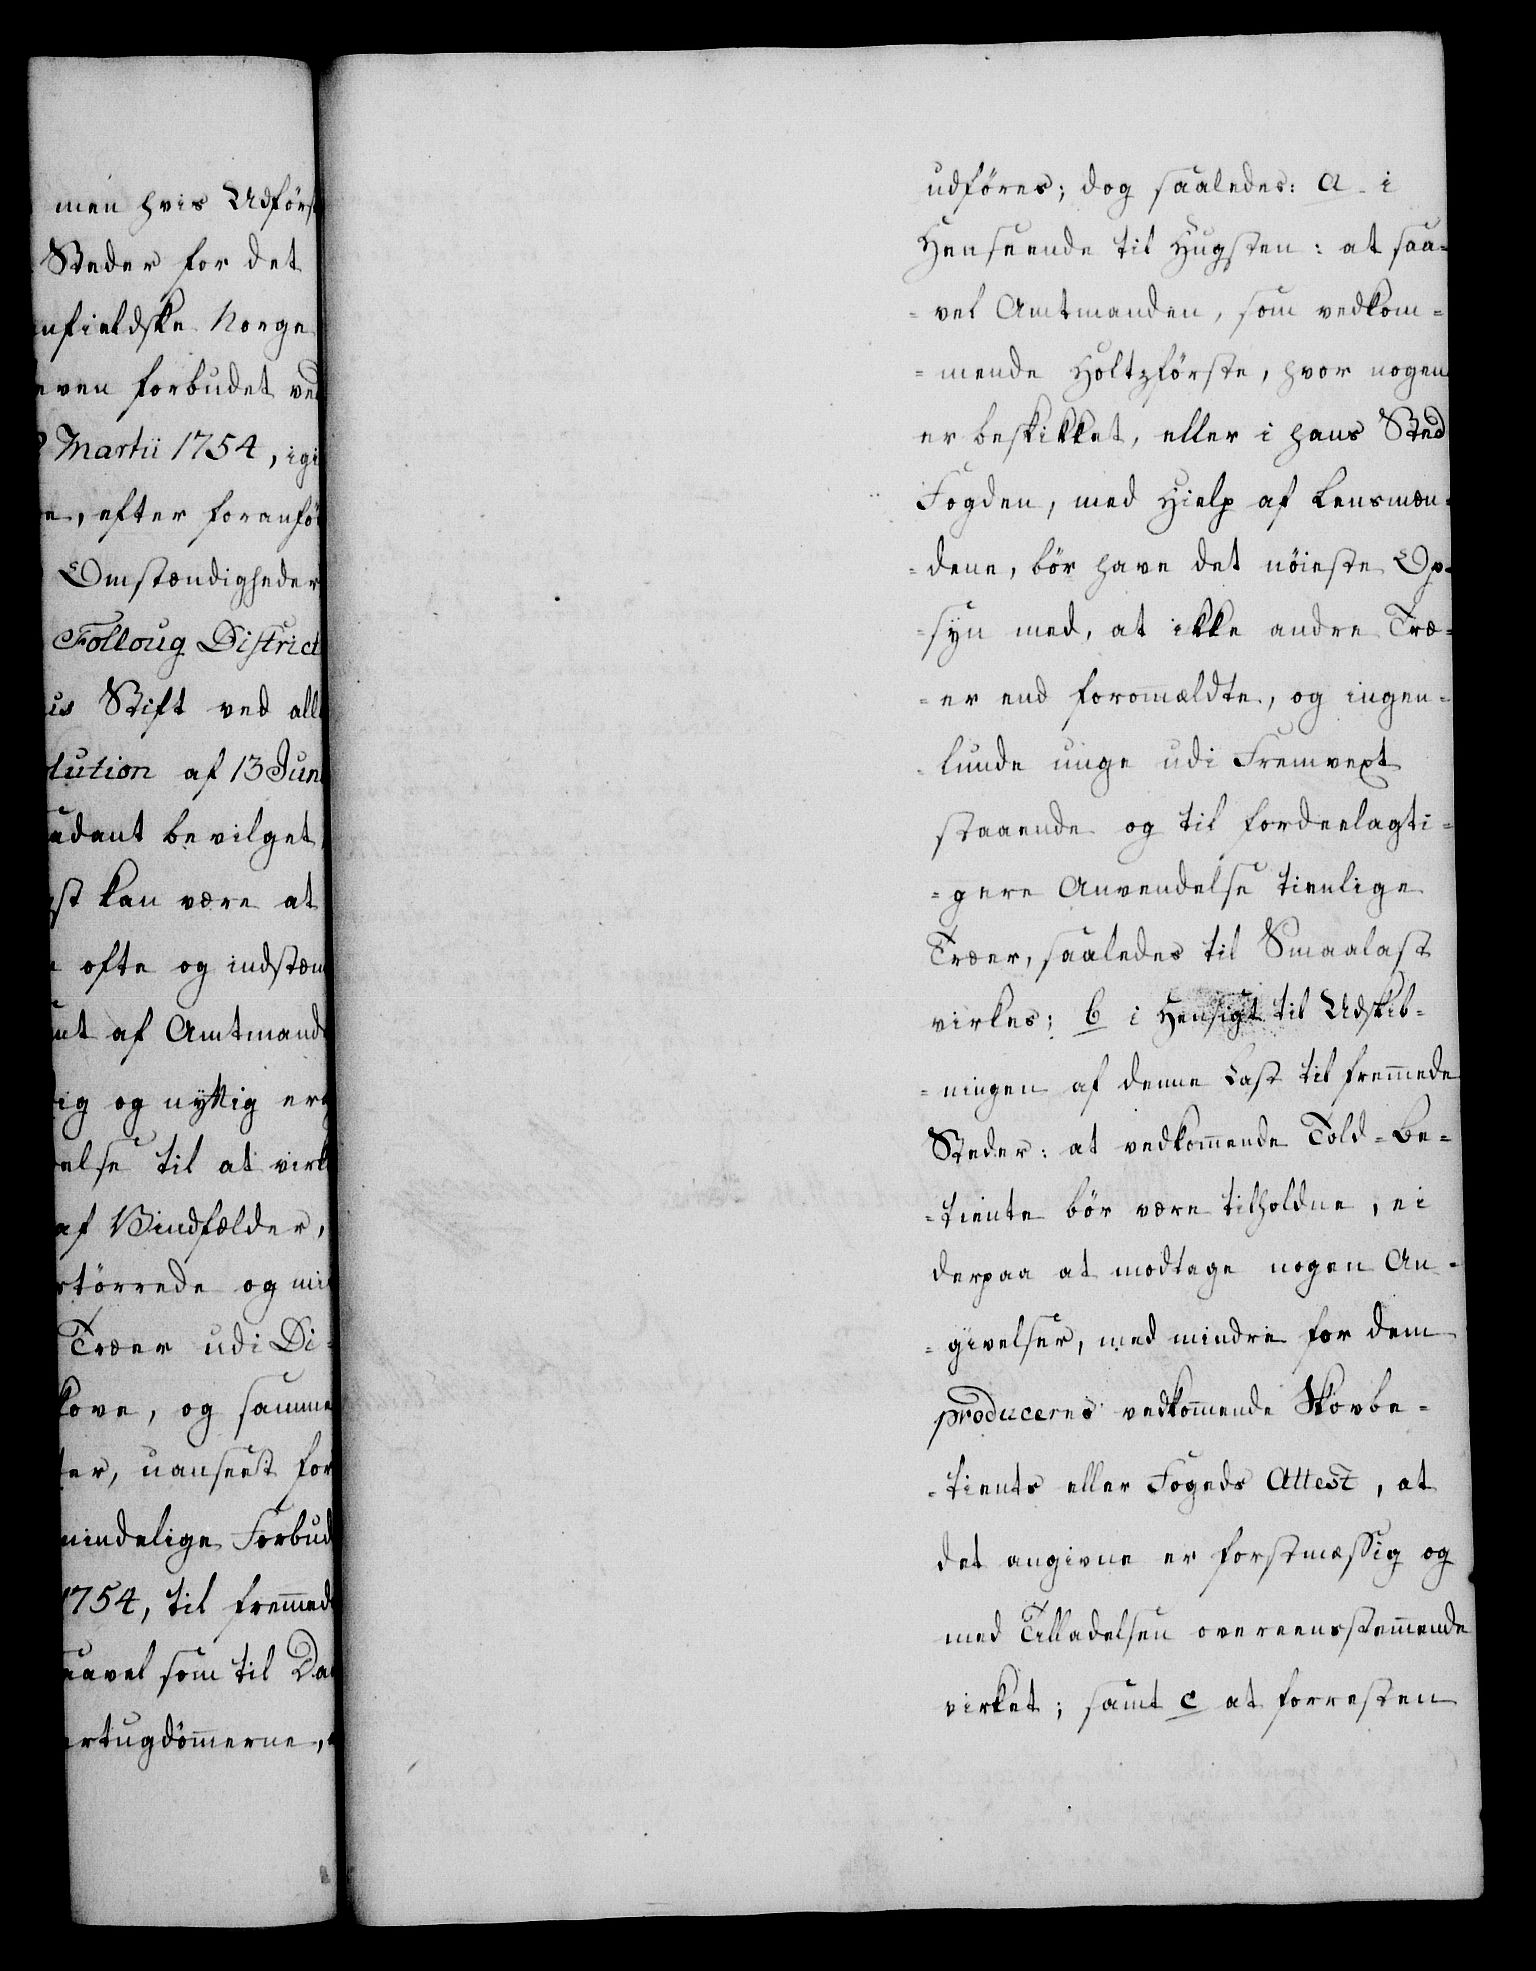 men hvis Udförs
Steder for det
nfieldske Norge
even forbudet ved
Martii 1754, igi
e, efter foranfö
Omstændigheder
Folloug District
us Stift ved all
lution af 13 Jun
adant bevilget
st kan være at
ofte og indstæn
nt af Amtmand
ig og nyttig er
else til at virk
af Vindfælder,
törrede og mi
Træer udi Di-
kove, og samme
er, uanseet for
mindelige Forbud
1754, til fremed
aavel som til Da
rtugdömerne,
udföres; dog saaledes: a - i
Henseende til Hugsten: at saa-
-vel Amtmanden, som vedkom-
-mende Holtzförste, hvor nogen
er beskikket, eller i hans Sted
Fogden, med Hielp af Lensmæn-
-dene, bör have det nöieste Op-
-syn med, at ikke andre Træ-
-er end foromældte, og ingen-
-lunde unge udi Fremvext
staaende og til fordeelagti-
-gere Anvendelse tienlige
Træer, saaledes til Smaalast
virkes; b i Hensigt til Udskib-
-ningen af denne Last til fremede
Steder: at vedkomende Told-Be-
-tiente bör være tilholdne, ei
derpaa at modtage nogen An-
-givelser, med mindre for dem
produceres vedkomende Skovbe-
-tients eller Fogeds Attest, at
det angivne er forstmæssig og
med Tilladelsen overeensstemende
virket; samt c at forresten